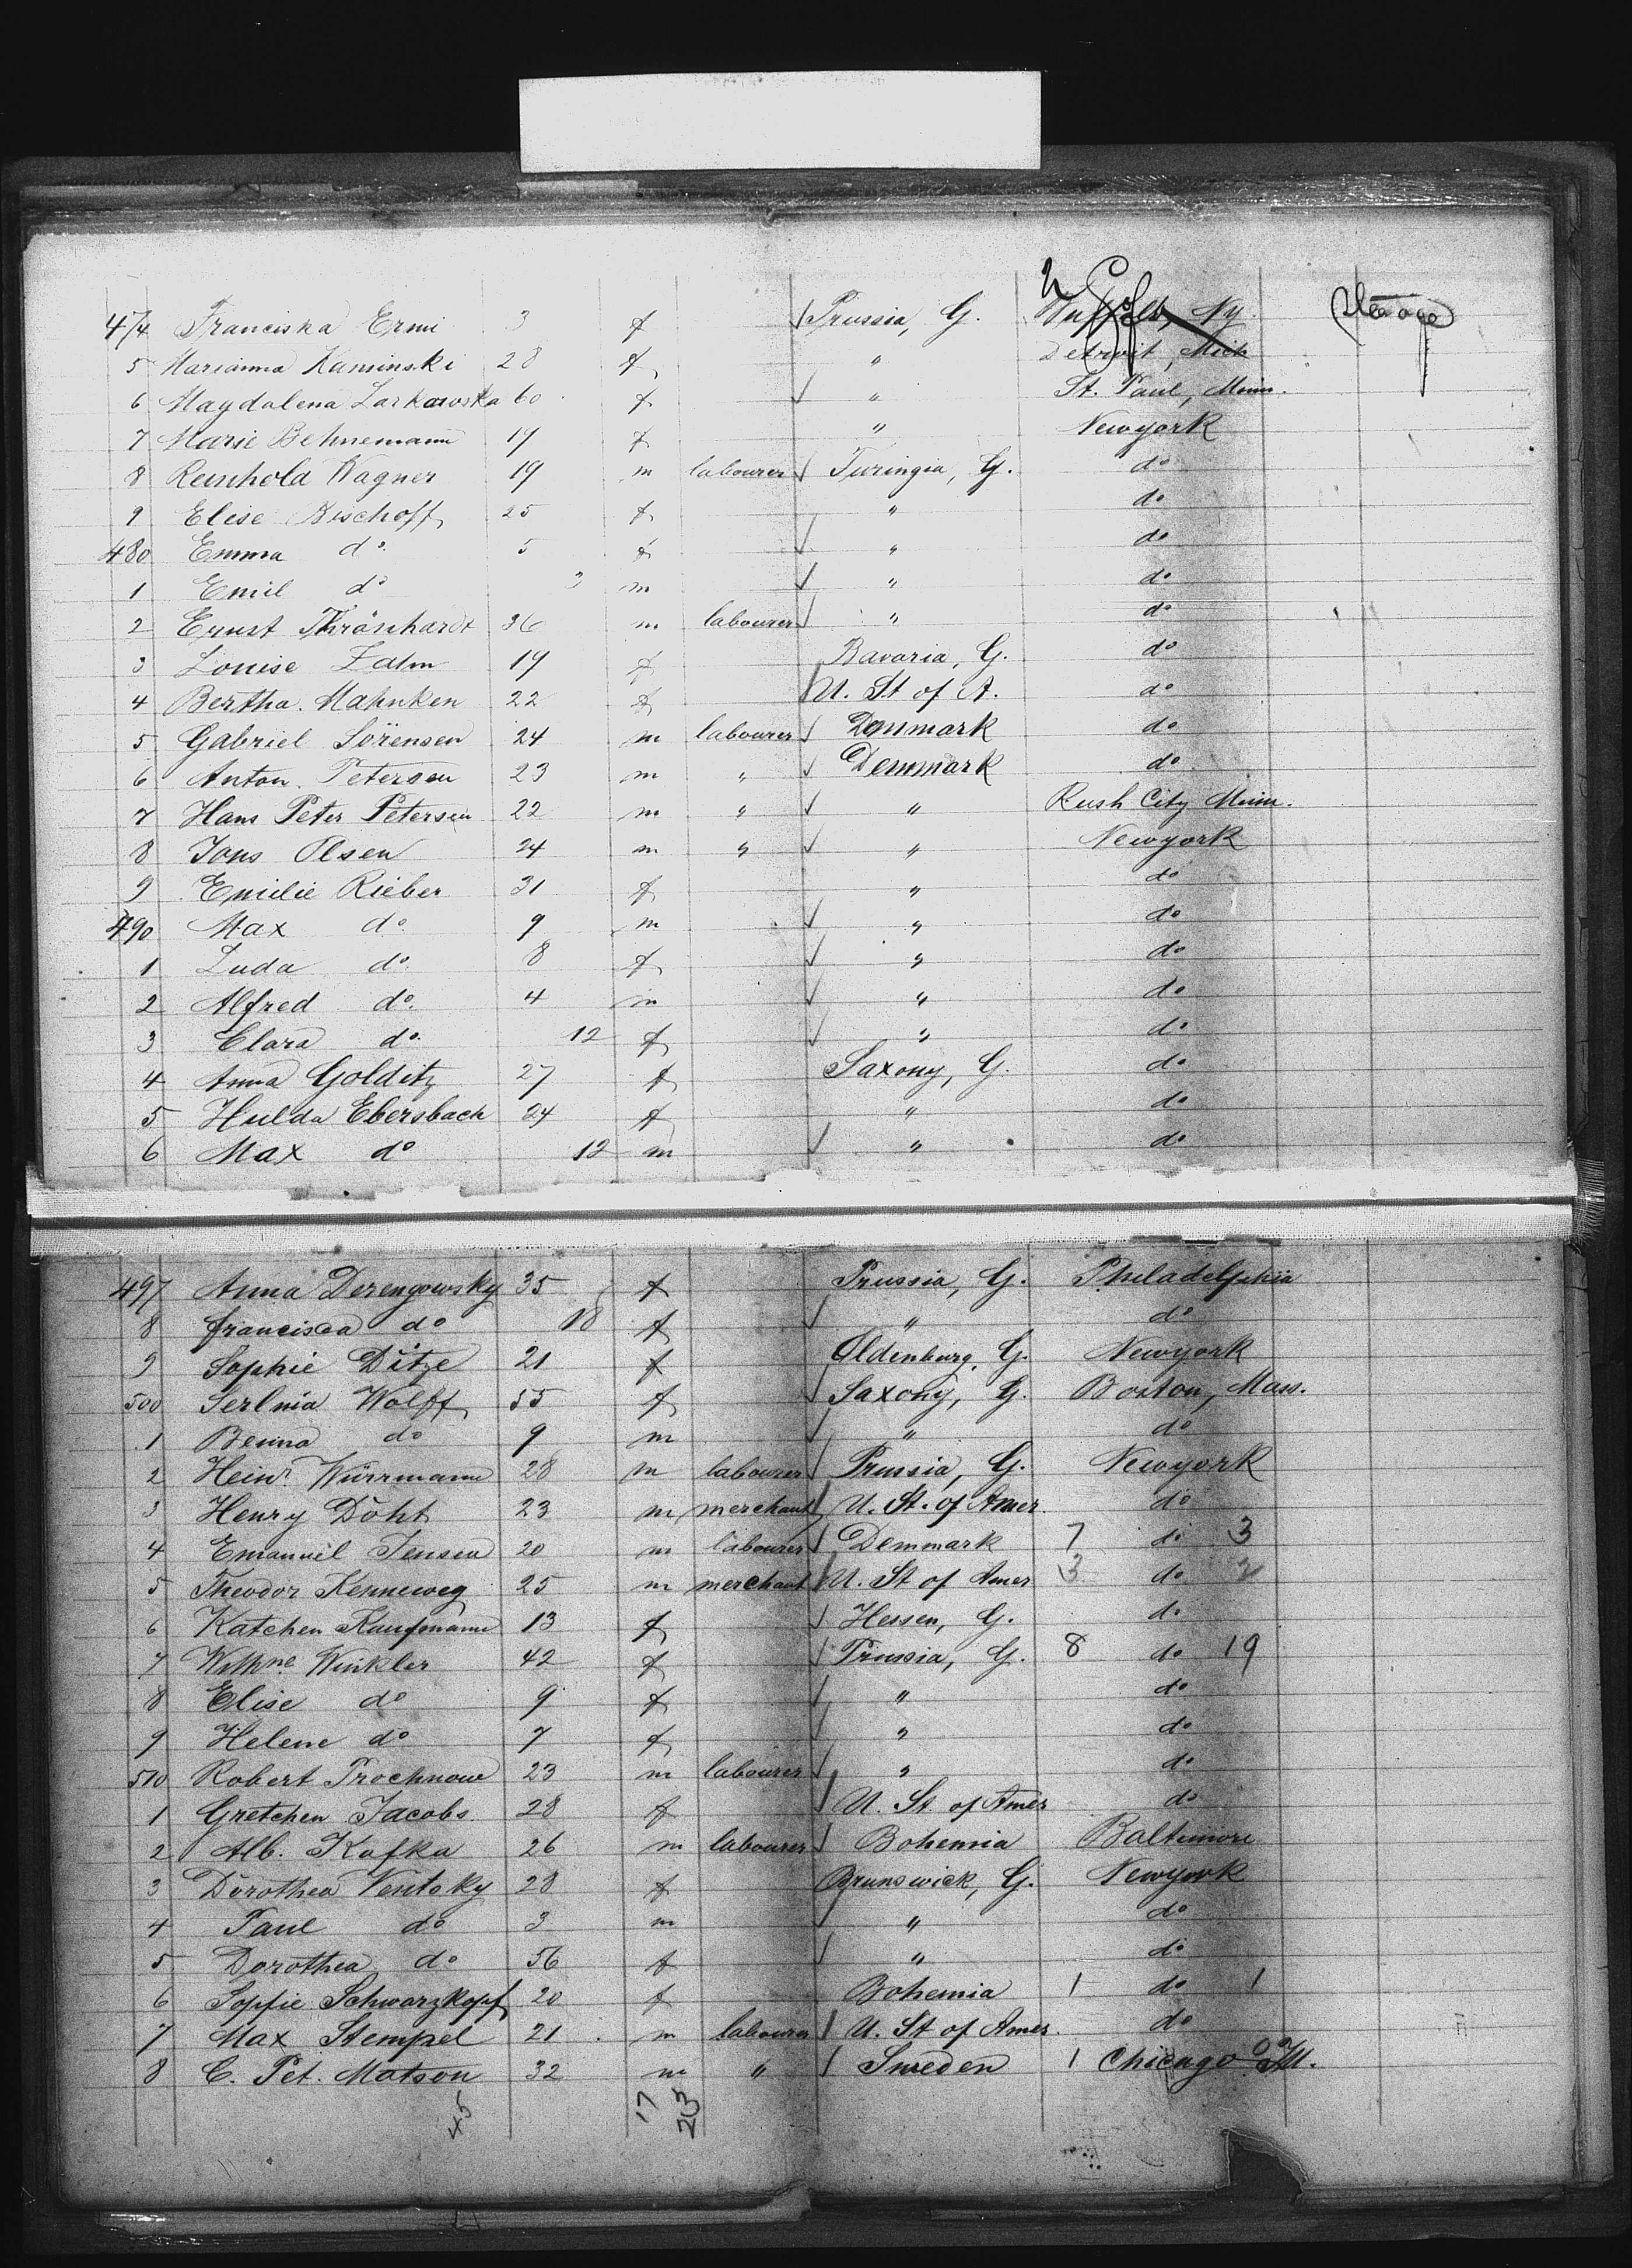 474 Franciska Ermi 3 f Prussia, G. Buffalo, Ny. Steerage
5 Marianna Kaminski 28 f " Detroit, Mich
6 Magdalena Zarkowska 60 f " St. Paul, Minn.
7 Marie Behnemann 19 f " Newyork
8 Reinhold Wagner 19 m labourer Turingia, G. do
9 Elise Bischoff 25 f " do
480 Emma do. 5 f " do
1 Emil do 3 m " do
2 Ernst 36 m labourer " do
3 Louise Zahn 19 f Bavaria, G. do
4 Bertha Mahnken 22 f U. St of A. do
5 Gabriel Sörensen 24 m labourer Denmark do
6 Anton Petersen 23 m " Denmark do
7 Hans Peter Petersen 22 m " " Rush City Minn.
8 Jons Olsen 24 m " " Newyork
9 Emilie Rieber 31 f " do
490 Max do. 9 m " do
1 Luda do. 8 f " do
2 Alfred do. 4 m " do
3 Clara do. 12 f " do
4 Anna Golditz 27 f Saxony, G. do
5 Hulda Ebersbach 24 f " do
6 Max do 12 m " do
497 Anna Derengowsky 35 f Prussia, G. Philadelphia
8 Francisca do 18 f " do
9 Sophie Ditze 21 f Oldenburg, G. Newyork
500 Wolff 55 f Saxony, G. Boston, Mass.
1 Benno do 9 m " do
2 Heinr. Würrmann 28 m labourer Prussia, G. Newyork
3 Henry Döht 23 m merchant U. St. of Amer. do
4 Emanuel Jensen 20 m labourer Denmark 7 do 3
5 Theodor Kenneweg 25 m merchant U. St of Amer 3 do 2
6 Katchen Kaufmann 13 f Hessen, G. do
7 Wilhne Winkler 42 f Prussia, G. 8 do 19
8 Elise do 9 f " do
9 Helene do 7 f " do
510 Robert Prochnow 23 m labourer " do
1 Gretchen Jacobs 28 f U. St of Amer do
2 Alb. Kafka 26 m labourer Bohemia Baltimore
3 Dorothea Ventsky 28 f Brunswick, G. Newyork
4 Paul do 3 m " do
5 Dorothea do 56 f " do
6 Sopfie Schwarzkopf 20 f Bohemia 1 do 1
7 Max Stempel 21 m labourer U. St of Amer. do
8 C. Pet. Matson 32 m " Sweden 1 Chicago Ill.
45 17 23